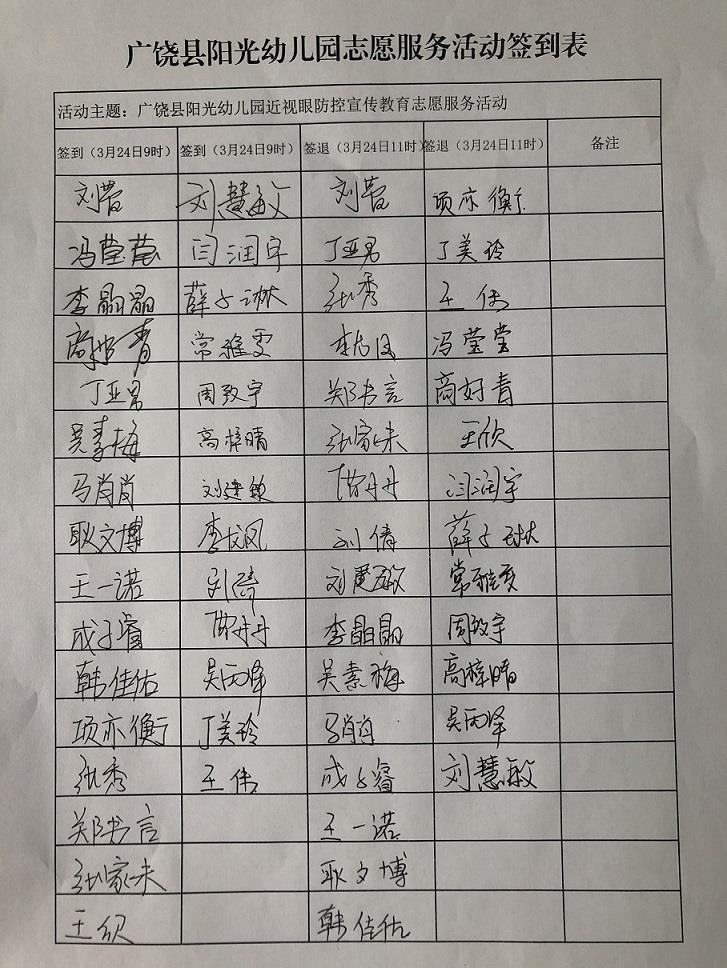 广饶县阳光幼儿园志愿服务活动签到表
活动主题：广饶县阳光幼儿园近视眼防控宣传教育志愿服务活动
签到（3月24日9时） 签到（3月24日9时） 签退（3月24日11时） 签退（3月24日11时） 备注
刘慧敏 项亦衡
冯莹莹 闫润宇 丁亚男 丁美玲
李晶晶 张秀 王伟
常雅雯 冯莹莹
丁亚男 周致宇 郑书言 高好青
吴素梅 高梓晴 张家硕 王欣
马肖肖 刘建敏 陈丹丹 闫润宇
耿文博 李成凤 刘倩
王一诺 刘倩 刘慧敏 常雅雯
成子睿 陈丹丹 李晶晶 周致宇
韩佳佑 吴丙泽 吴素梅 高梓晴
项亦衡 丁美玲 马肖肖 吴丙泽
张秀 王伟 成子睿 刘慧敏
郑书言 王一诺
耿文博
王欣 韩佳佑